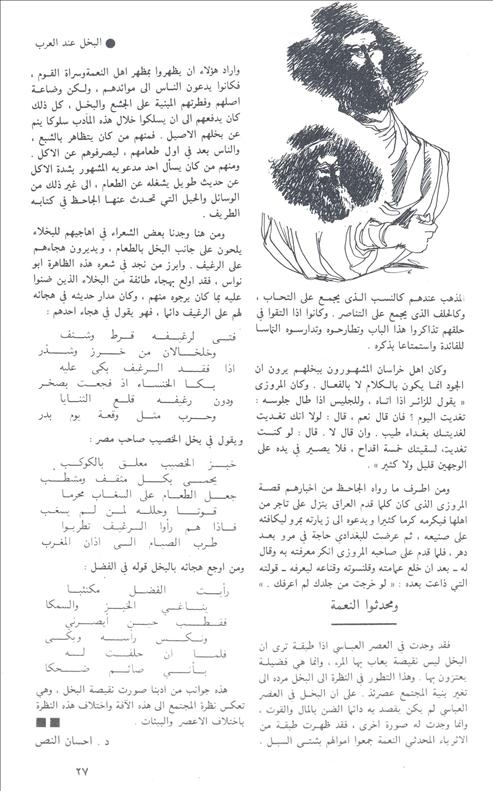 ● البخل عند العرب
المذهب عندهم كالنسب الذى يجمع على التحاب ،
وكالحلف الذى يجمع على التناصر . وكانوا اذا التقوا في
حلقهم تذاكروا هذا الباب وتطارحوه وتدارسوه التماسا
للفائدة واستمتاعا بذكره .
وكان اهل خراسان المشهورون ببخلهم يرون ان
الجود انما يكون بالكلام لا بالفعال . وكان المروزى
« يقول للزائر اذا اتاه ، وللجليس اذا طال جلوسه :
تغديت اليوم ؟ فان قال نعم ، قال : لولا انك تغديت
لغديتك بغداء طيب . وان قال لا . قال : لو كنت
تغديت، لسقيتك خمسة اقداح ، فلا يصير في يده على
الوجهين قليل ولا كثير » .
ومن اطرف ما رواه الجاحظ من اخبارهم قصة
المروزى الذى كان كلما قدم العراق ينزل على تاجر من
اهلها فيكرمه كرما كثيرا ويدعوه الى زيارته بمرو ليكافئه
على صنيعه ، ثم عرضت للبغدادي حاجة في مرو بعد
دهر ، فلما قدم على صاحبه المروزى انكر معرفته به وقال
له ـ بعد ان خلع عمامته وقلنسوته وقناعه ليعرفه ـ قولته
التي ذاعت بعده : « لو خرجت من جلدك لم اعرفك . »
ومحدثوا النعمة
فقد وجدت في العصر العباسي اذا طبقة ترى ان
البخل ليس نقيصة يعاب بها المرء ، وانما هي فضيلة
يعتزون بها . وهذا التطور في النظرة الى البخل مرده الى
تغير بنية المجتمع عصرئذ . على ان البخل في العصر
العباسي لم يكن يقصد به دائما الضن بالمال والقوت ،
وانما وجدت له صورة اخرى ، فقد ظهرت طبقة من
الاثرياء المحدثي النعمة جمعوا اموالهم بشتى السبل .
واراد هؤلاء ان يظهروا بمظهر اهل النعمة وسراة القوم ،
فكانوا يدعون الناس الى موائدهم ، ولكن وضاعة
اصلهم وفطرتهم المبنية على الجشع والبخل ، كل ذلك
كان يدفعهم الى ان يسلكوا خلال هذه المآدب سلوكا ينم
عن بخلهم الاصيل . فمنهم من كان يتظاهر بالشبع ،
والناس بعد في اول طعامهم ، ليصرفوهم عن الاكل .
ومنهم من كان يسأل احد مدعويه المشهور بشدة الاكل
عن حديث طويل يشغله عن الطعام ، الى غير ذلك من
الوسائل والحيل التي تحدث عنها الجاحظ في كتابه
الطريف .
ومن هنا وجدنا بعض الشعراء في اهاجيهم للبخلاء
يلحون على جانب البخل بالطعام ، ويديرون هجاءهم
على الرغيف . وابرز من نجد في شعره هذه الظاهرة ابو
نواس ، فقد اولع بهجاء طائفة من البخلاء الذين ضنوا
عليه بما كان يرجوه منهم ، وكان مدار حديثه في هجائه
لهم على الرغيف دائما ، فهو يقول في هجاء احدهم :
فتى لرغيفه قرط وشنف
وخلخالان من خرز وشذر
اذا فقد الرغيف بكى عليه
بكا الخنساء اذ فجعت بصخر
ودون رغيفه قلع الثنايا
وحرب مثل وقعة يوم بدر
ويقول في بخل الخصيب صاحب مصر :
خبز الخصيب معلق بالكوكب
يحمى بكل مثقف ومشطب
جعل الطعام على السغاب محرما
قوتا وحلله لمن لم يسغب
فاذا هم رأوا الرغيف تطربوا
طرب الصيام الى اذان المغرب
ومن اوجع هجائه بالبخل قوله في الفضل :
رأيت الفضل مكتئبا
يناغي الخبز والسمكا
فقطب حين أبصرني
ونكس رأسه وبكى
فلما ان حلفت له
بأني صائم ضحكا
هذه جوانب من ادبنا صورت نقيصة البخل ، وهي
تعكس نظرة المجتمع الى هذه الآفة واختلاف هذه النظرة
باختلاف الاعصر والبيئات .
د . احسان النص
٢٧